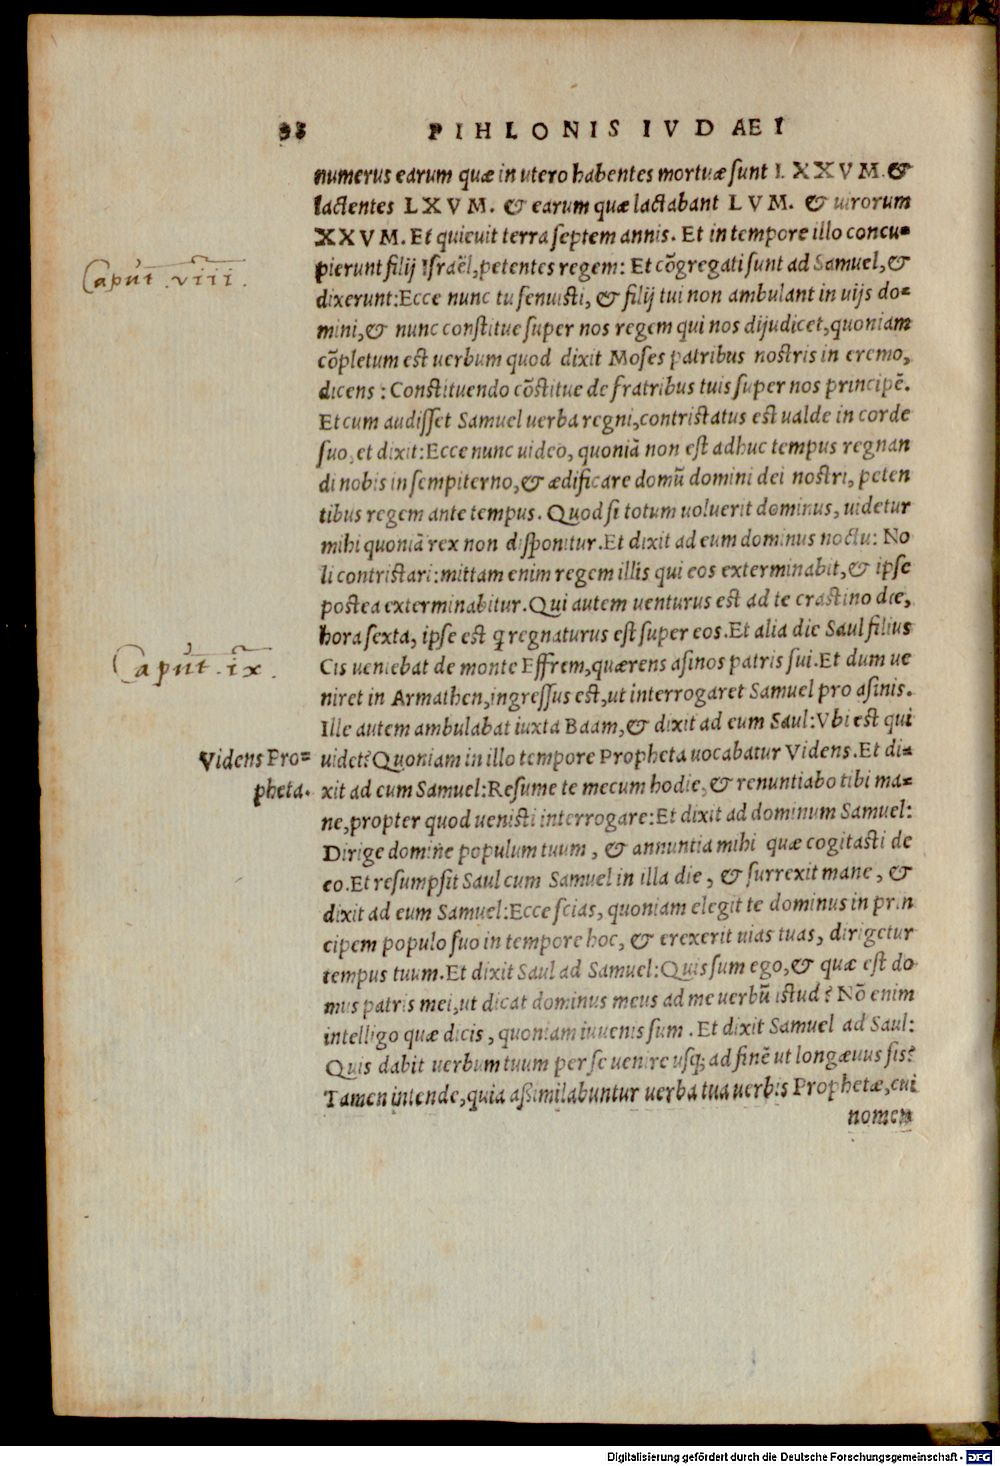 PIHLONIS IVDAEI
numerus earum quæ in utero habentes mortuæ sunt LXXVM. &
lactentes LXVM. & earum quæ lactabant LVM. & uirorum
XXVM. Et quieuit terra septem annis. Et in tempore illo concu=
Caput .viii.
pierunt filij Israël, petentes regem: Et cõgregati sunt ad Samuel, &
dixerunt: Ecce nunc tu senuisti, & filij tui non ambulant in uijs do=
mini, & nunc constitue super nos regem qui nos dijudicet, quoniam
cõpletum est uerbum quod dixit Moses patribus nostris in eremo,
dicens: Constituendo cõstitue de fratribus tuis super nos principẽ.
Et cum audisset Samuel uerba regni, contristatus est ualde in corde
suo, et dixit: Ecce nunc uideo, quoniã non est adhuc tempus regnan
di nobis in sempiterno, & ædificare domũ domini dei nostri, peten
tibus regem ante tempus. Quod si totum uoluerit dominus, uidetur
mihi quoniã rex non disponitur. Et dixit ad eum dominus noctu: No
li contristari: mittam enim regem illis qui eos exterminabit, & ipse
postea exterminabitur. Qui autem uenturus est ad te crastino die,
hora sexta, ipse est q regnaturus est super eos. Et alia die Saul filius
Caput .ix.
Cis ueniebat de monte Effrem, quærens asinos patris sui. Et dum ue
niret in Armathen, ingressus est, ut interrogaret Samuel pro asinis.
Ille autem ambulabat iuxta Baam, & dixit ad eum Saul: Vbi est qui
Videns Pro=
uidet? Quoniam in illo tempore Propheta uocabatur Videns. Et di=
pheta.
xit ad eum Samuel: Resume te mecum hodie, & renuntiabo tibi ma=
ne, propter quod uenisti interrogare: Et dixit ad dominum Samuel:
Dirige domine populum tuum, & annuntia mihi quæ cogitasti de
eo. Et resumpsit Saul cum Samuel in illa die, & surrexit mane, &
dixit ad eum Samuel: Ecce scias, quoniam elegit te dominus in prin
cipem populo suo in tempore hoc, & erexerit uias tuas, dirigetur
tempus tuum. Et dixit Saul ad Samuel: Quis sum ego, & quæ est do
mus patris mei, ut dicat dominus meus ad me uerbũ istud? Nõ enim
intelligo quæ dicis, quoniam iuuenis sum. Et dixit Samuel ad Saul:
Quis dabit uerbum tuum per se uenire usq; ad finẽ ut longæuus sis?
Tamen intende, quia assimilabuntur uerba tua uerbis Prophetæ, cui
nomen
Digitalisierung gefördert durch die Deutsche Forschungsgemeinschaft - DFG